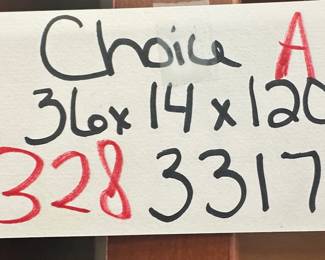 Choice A
36x14x120
328 3317